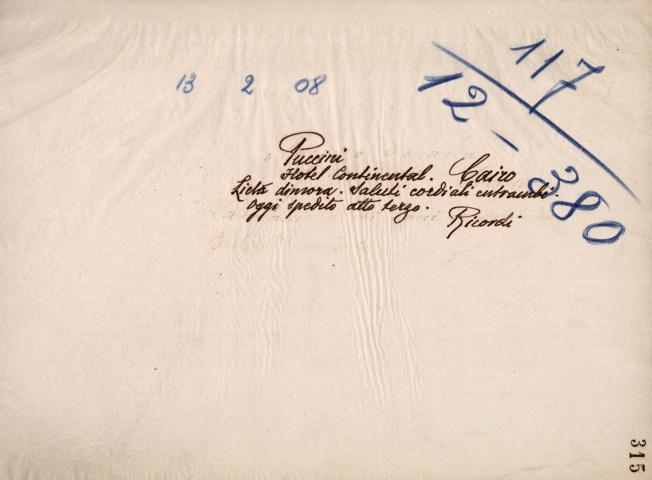 117
13 2 08
12 - 380
Puccini
Hotel Continental. Cairo
Lieta dimora. Saluti cordiali entrambi
Oggi spedito atto terzo.
Ricordi
315